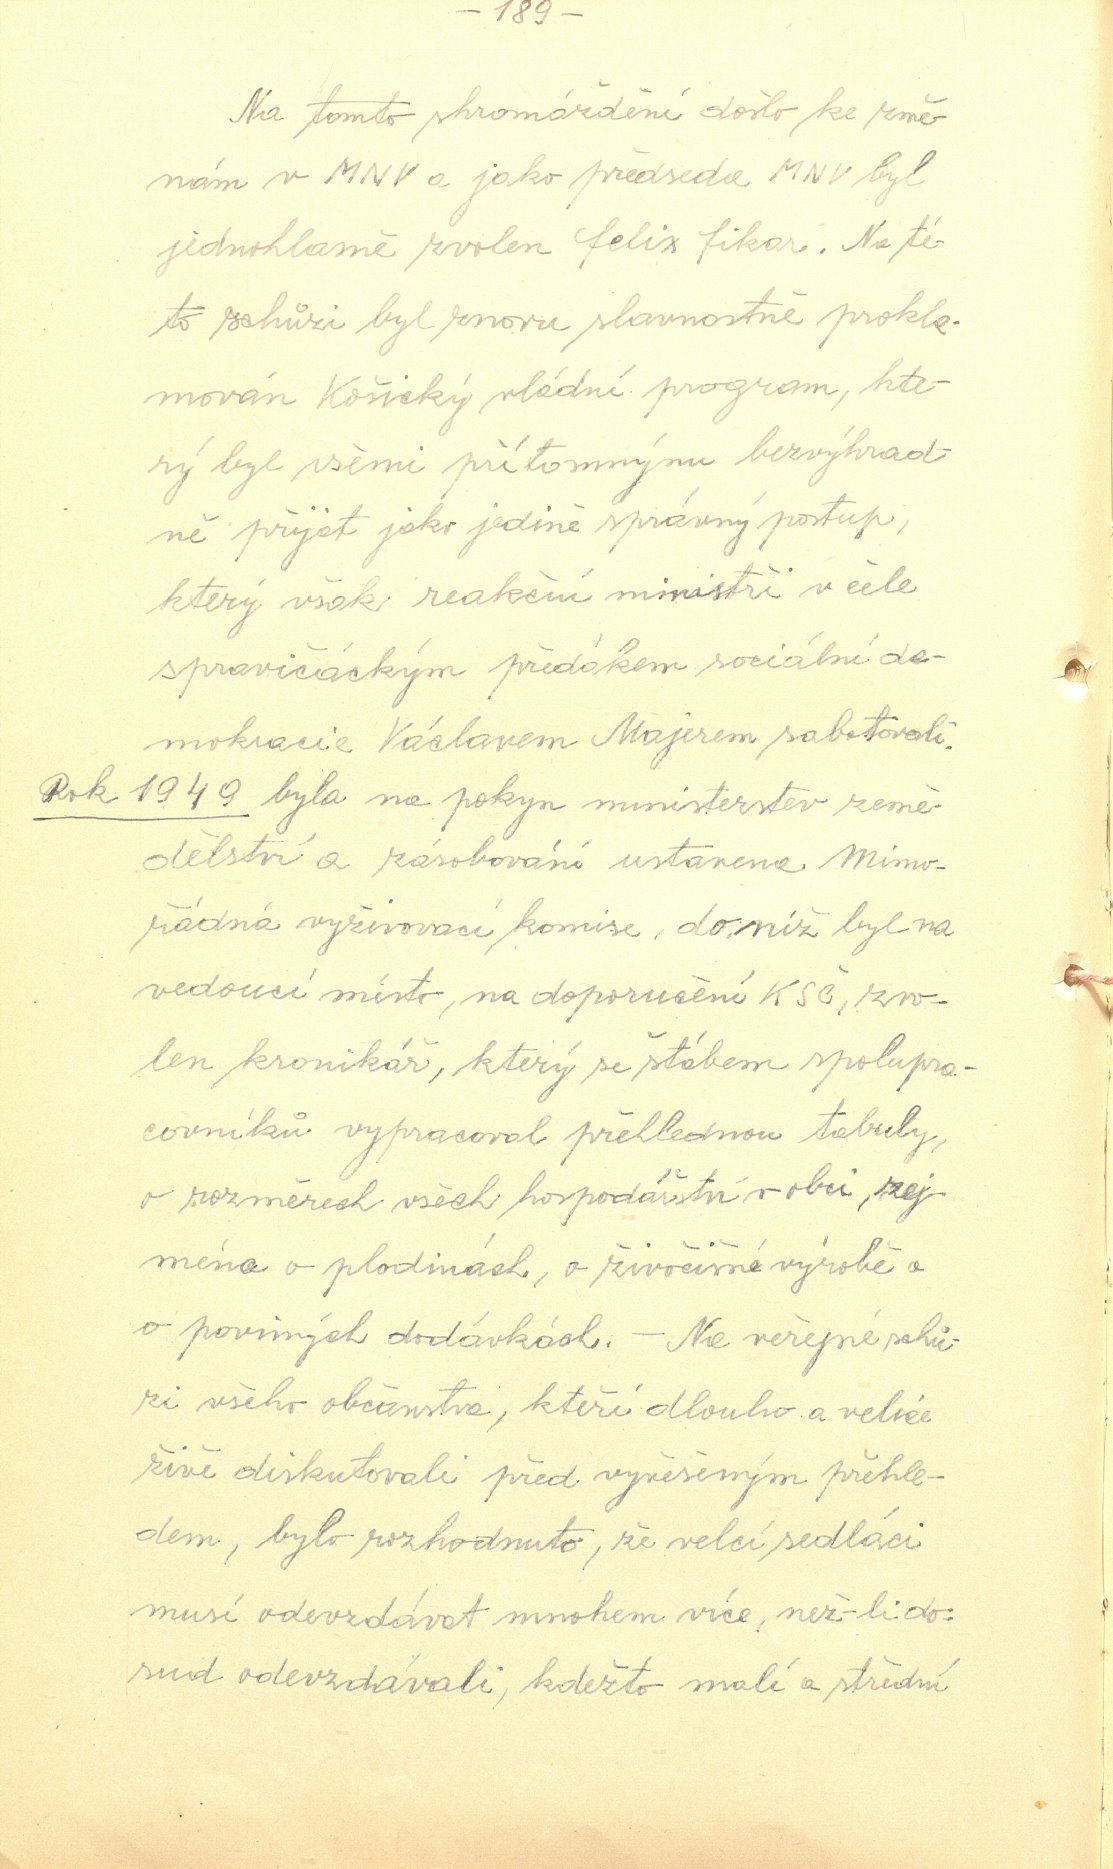 - 189 -
Na tomto shromáždění došlo ke změ-
nám v MNV a jako předseda MNV byl
jednohlasně zvolen Felix Fikar. Na té-
to schůzi byl znovu slavnostně prokla-
mován Košický vládní program, kte-
rý byl všemi přítomnými bezvýhrad-
ně přijat jako jedině správný postup,
který však reakční ministři v čele
s pravičáckým předákem sociální de-
mokracie Václavem Majerem sabotovali.
Rok 1949 byla na pokyn ministerstev země-
dělství a zásobování ustavena Mimo-
řádná vyživovací komise, do níž byl na
vedoucí místo, na doporučení KSČ, zvo-
len kronikář, který se štábem spolupra-
covníků vypracoval přehlednou tabuly,
o rozměrech všech hospodářství v obci, zej-
ména o plodinách, o živočišné výrobě a
o povinných dodávkách. - Na veřejné schů-
zi všeho občanstva, kteří dlouho a velice
živě diskutovali před vyvěšeným přehle-
dem, bylo rozhodnuto, že velcí sedláci
musí odevzdávat mnohem více, než-li do-
sud odevzdávali, kdežto malí a střední